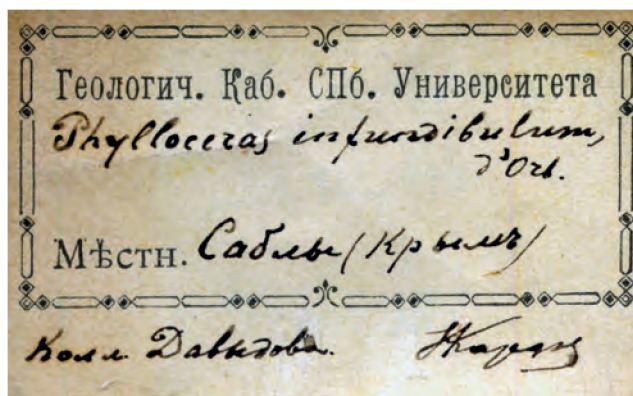 Геологич. Каб. СПб. Университета
Phylloceras infundibulum,
d'Orb.
Мѣстн. Саблы (Крымъ)
Колл. Давыдова.